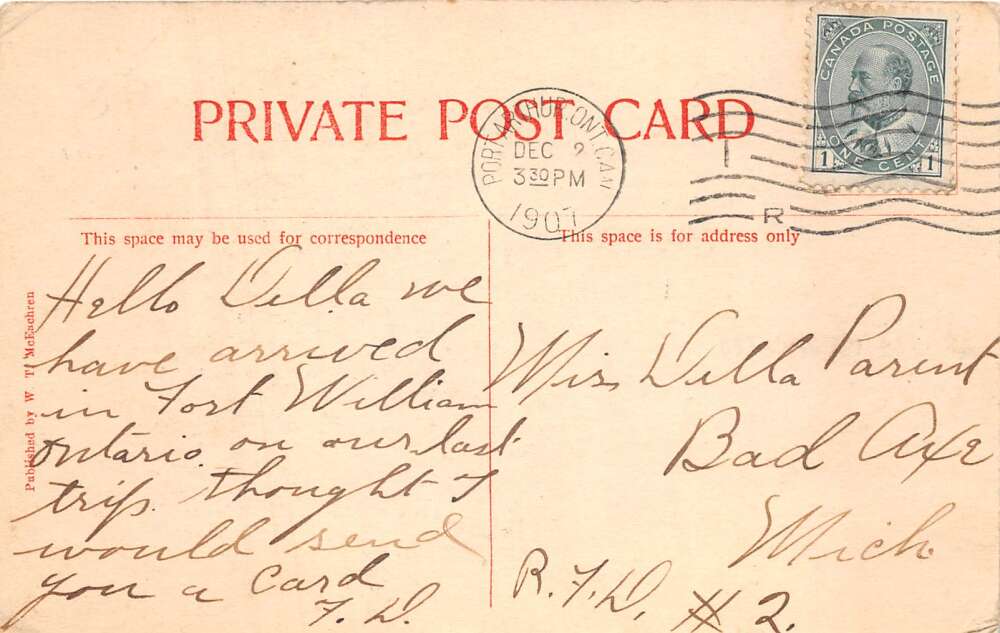 PRIVATE POST CARD
CANADA POSTAGE
1 ONE CENT 1
PORT ARTHUR, ONT. CAN
DEC 2
3 30 PM
1907
R
This space may be used for correspondence
This space is for address only
Published by W. T. McEachren
Hello Della we
have arrived
in Fort William
Ontario. on our last
trip. thought I
would send
you a card
F. D.
Miss Della Parent
Bad Axe
Mich.
R. F. D. # 2.